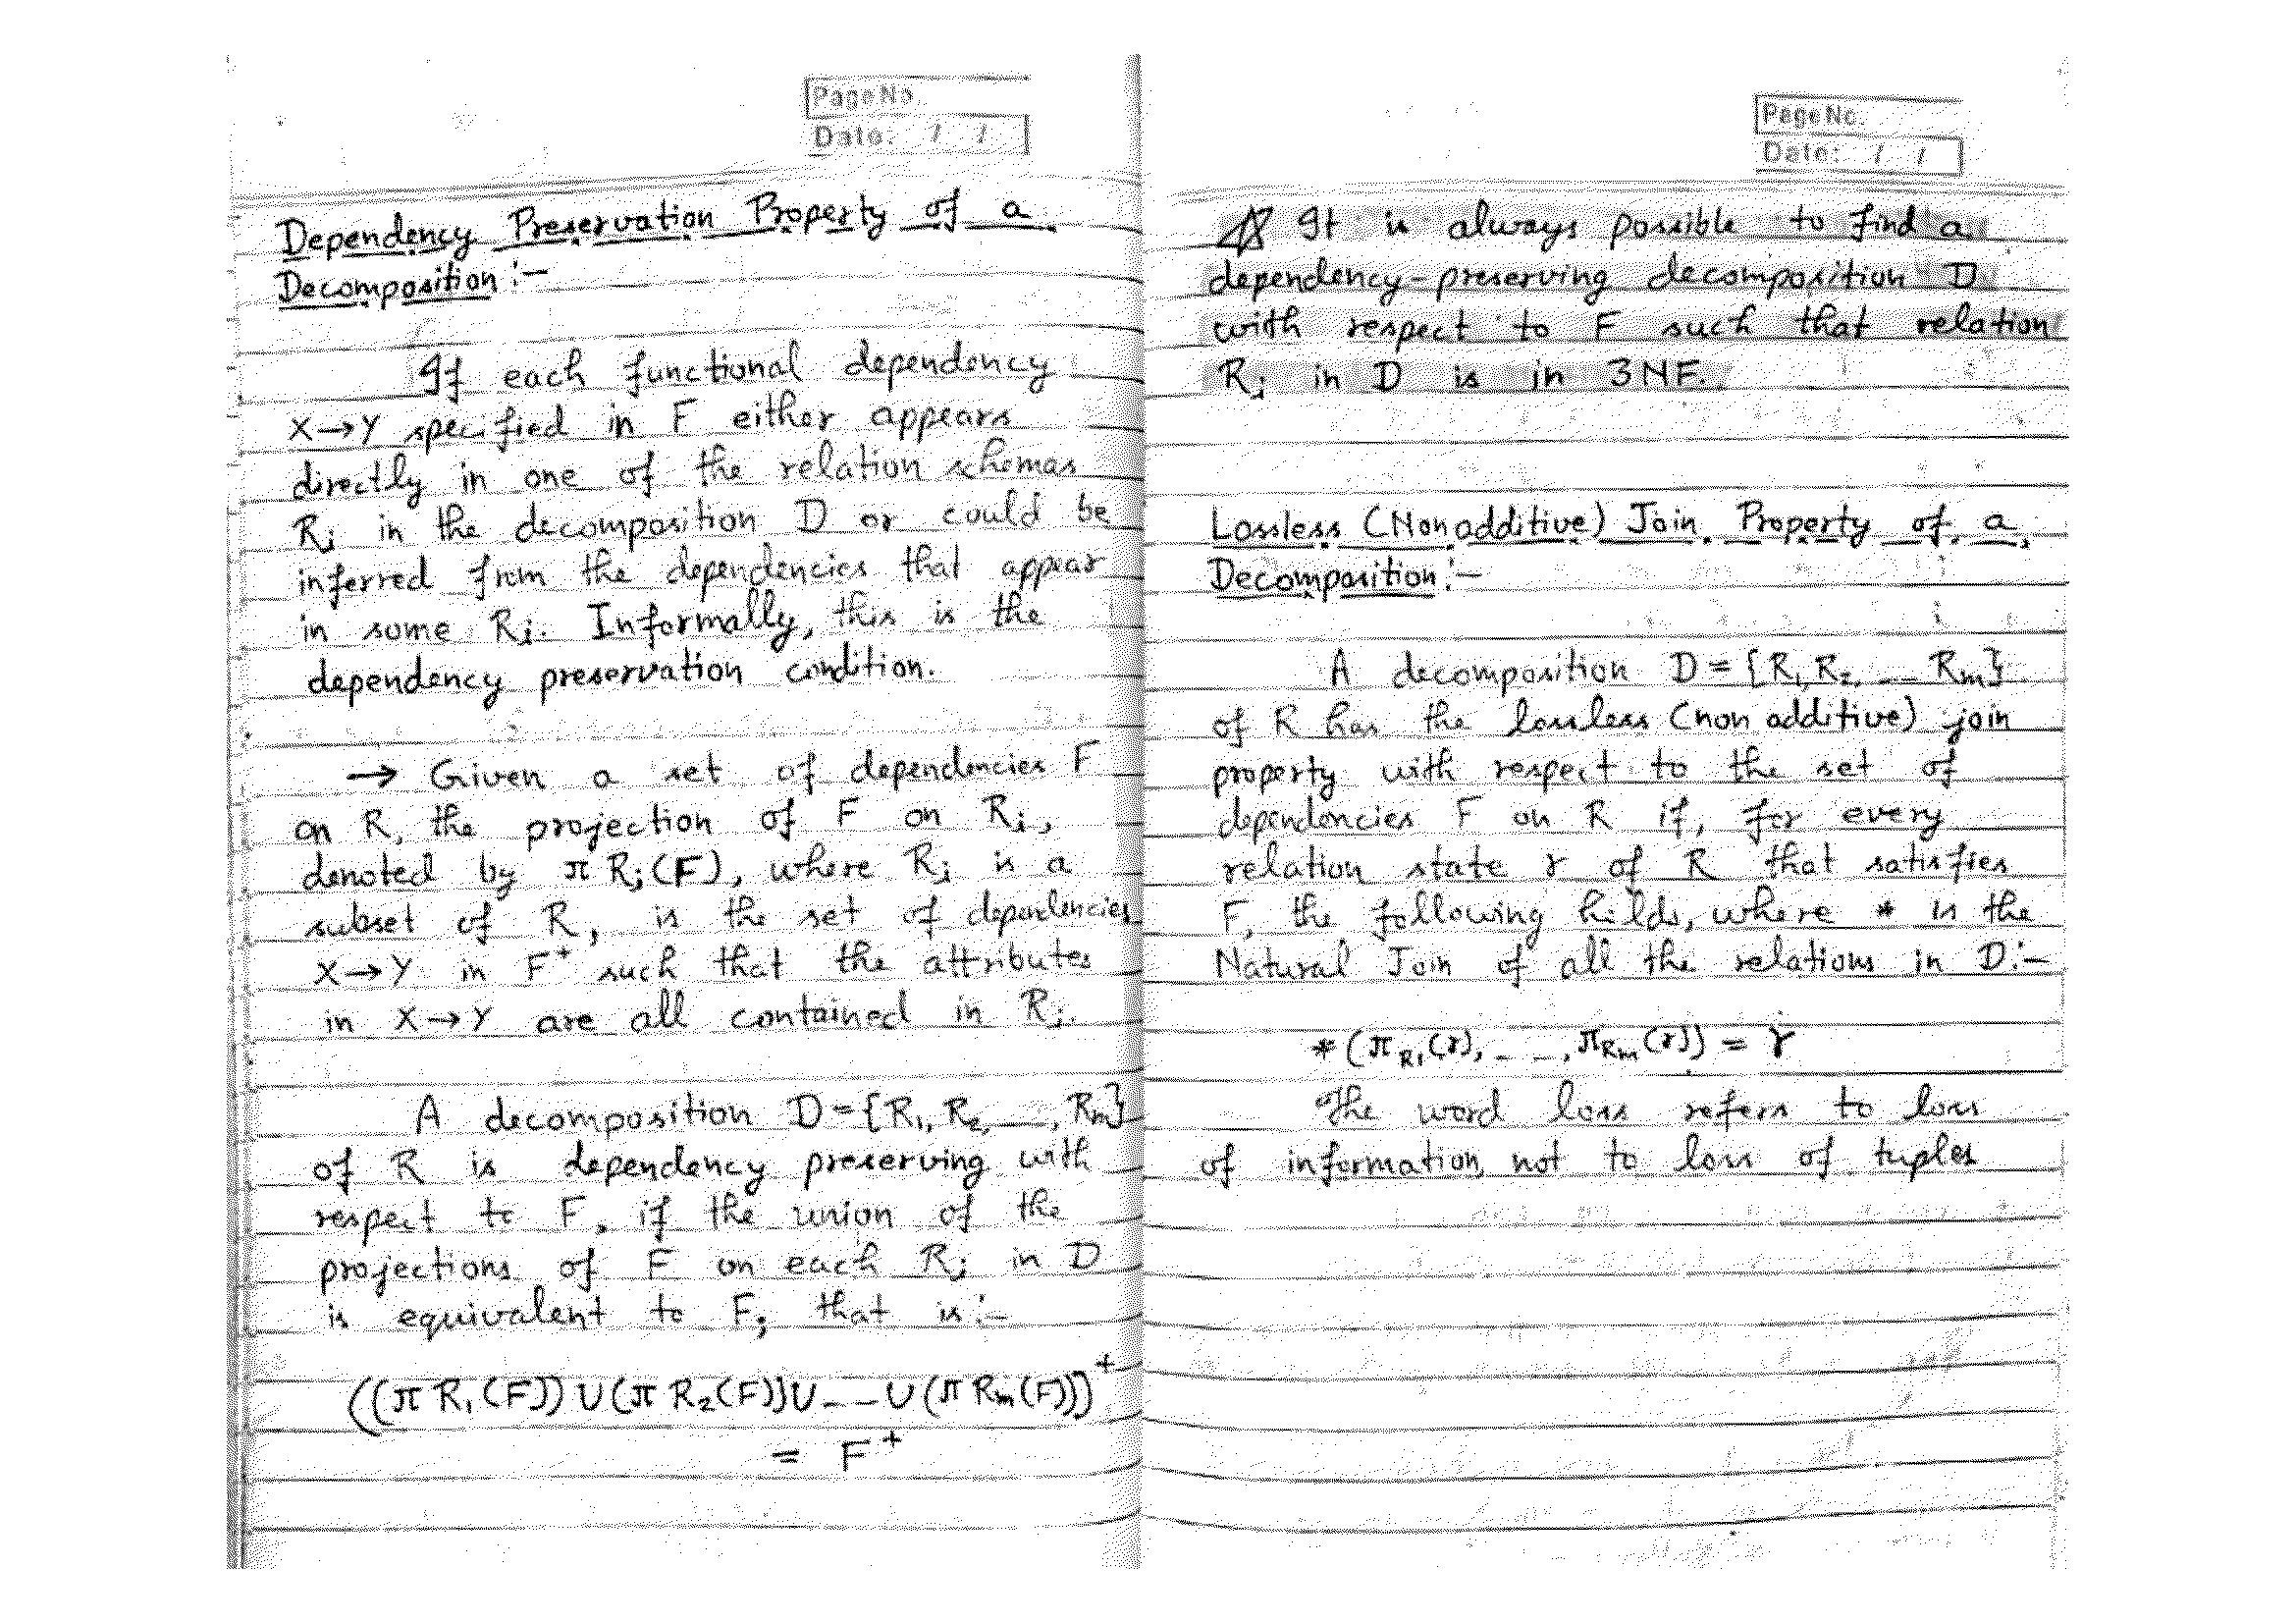 Page No.
Date: / /
Dependency Preservation Property of a
Decomposition :-
If each functional dependency
X→Y specified in F either appears
directly in one of the relation schemas
Ri in the decomposition D or could be
inferred from the dependencies that appear
in some Ri. Informally, this is the
dependency preservation condition.
→ Given a set of dependencies F
on R, the projection of F on Ri,
denoted by π Ri(F), where Ri is a
subset of R, is the set of dependencies
X→Y in F⁺ such that the attributes
in X→Y are all contained in Ri.
A decomposition D = {R1, R2, ---, Rm}
of R is dependency preserving with
respect to F, if the union of the
projections of F on each Ri in D
is equivalent to F; that is :-
((π R1(F)) U (π R2(F)) U --- U (π Rm(F)))⁺
= F⁺
Page No.
Date: / /
☆ It is always possible to find a
dependency-preserving decomposition D
with respect to F such that relation
Ri in D is in 3NF.
Lossless (Nonadditive) Join Property of a
Decomposition :-
A decomposition D = {R1, R2, --- Rm}
of R has the lossless (non additive) join
property with respect to the set of
dependencies F on R if, for every
relation state r of R that satisfies
F, the following holds, where * is the
Natural Join of all the relations in D :-
*(πR1(r), - - -, πRm(r)) = r
The word loss refers to loss
of information not to loss of tuples